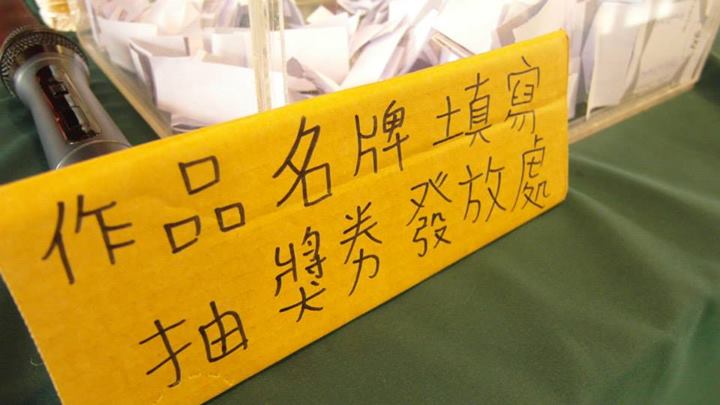 作品名牌填寫
抽獎券發放處